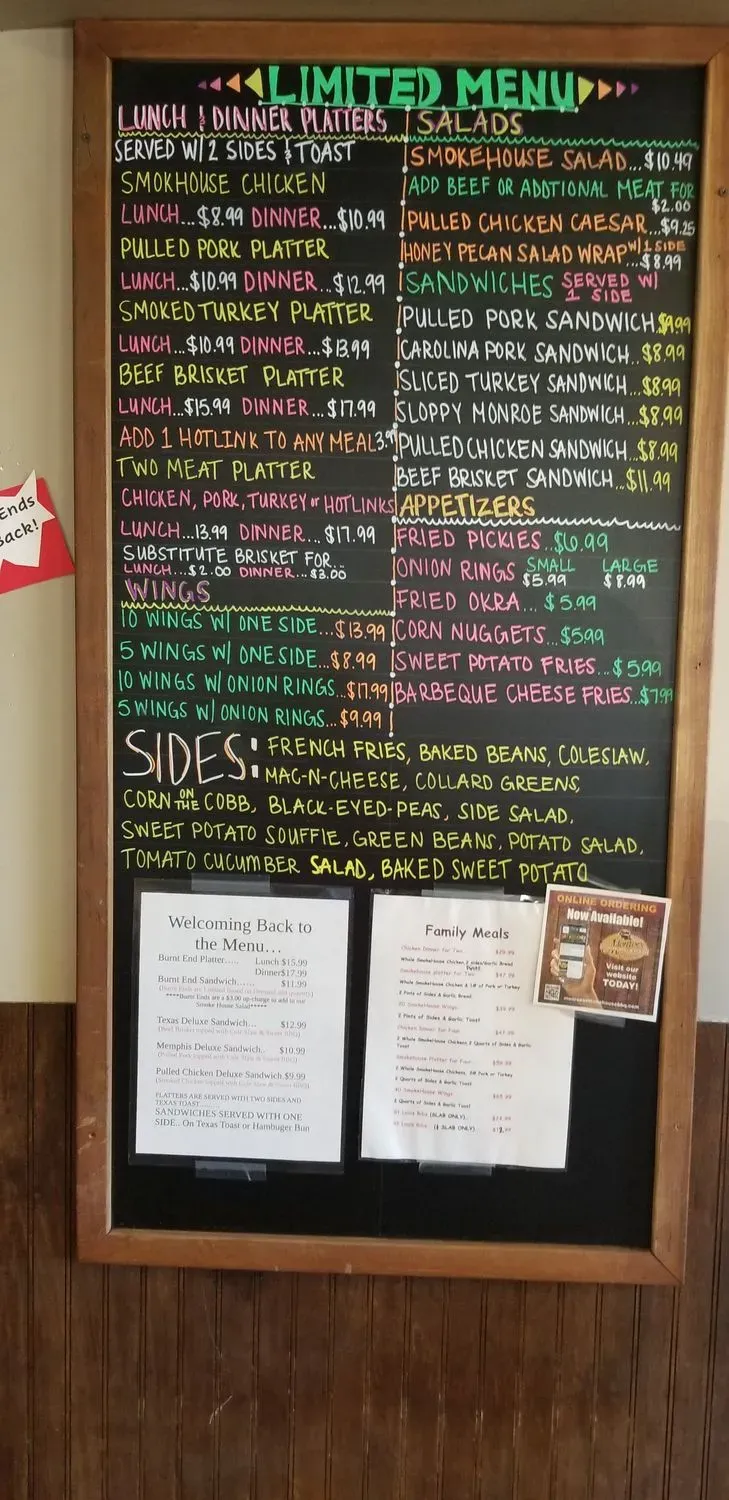 LIMITED MENU
LUNCH & DINNER PLATTERS
SERVED W/ 2 SIDES & TOAST
SMOKHOUSE CHICKEN
LUNCH...$8.99 DINNER...$10.99
PULLED PORK PLATTER
LUNCH...$10.99 DINNER...$12.99
SMOKED TURKEY PLATTER
LUNCH...$10.99 DINNER...$13.99
BEEF BRISKET PLATTER
LUNCH...$15.99 DINNER...$17.99
ADD 1 HOTLINK TO ANY MEAL 3.99
TWO MEAT PLATTER
CHICKEN, PORK, TURKEY or HOTLINKS
LUNCH...13.99 DINNER...$17.99
SUBSTITUTE BRISKET FOR...
LUNCH...$2.00 DINNER...$3.00
WINGS
10 WINGS W/ ONE SIDE...$13.99
5 WINGS W/ ONE SIDE...$8.99
10 WINGS W/ ONION RINGS...$17.99
5 WINGS W/ ONION RINGS...$9.99
SALADS
SMOKEHOUSE SALAD...$10.49
ADD BEEF OR ADDTIONAL MEAT FOR
$2.00
PULLED CHICKEN CAESAR...$9.25
HONEY PECAN SALAD WRAP W/ 1 SIDE
...$8.99
SANDWICHES SERVED W/
1 SIDE
PULLED PORK SANDWICH $9.99
CAROLINA PORK SANDWICH..$8.99
SLICED TURKEY SANDWICH...$8.99
SLOPPY MONROE SANDWICH...$8.99
PULLED CHICKEN SANDWICH...$8.99
BEEF BRISKET SANDWICH...$11.99
APPETIZERS
FRIED PICKIES...$6.99
ONION RINGS SMALL LARGE
$5.99 $8.99
FRIED OKRA...$5.99
CORN NUGGETS...$5.99
SWEET POTATO FRIES...$5.99
BARBEQUE CHEESE FRIES...$7.99
SIDES: FRENCH FRIES, BAKED BEANS, COLESLAW,
MAC-N-CHEESE, COLLARD GREENS,
CORN ON THE COBB, BLACK-EYED-PEAS, SIDE SALAD,
SWEET POTATO SOUFFIE, GREEN BEANS, POTATO SALAD,
TOMATO CUCUMBER SALAD, BAKED SWEET POTATO
Ends
Back!
Welcoming Back to
the Menu...
Burnt End Platter..... Lunch $15.99
Dinner$17.99
Burnt End Sandwich...... $11.99
****Burnt Ends are a $3.00 up-charge to add to our
Smoke House Salad*****
Texas Deluxe Sandwich... $12.99
Memphis Deluxe Sandwich.. $10.99
Pulled Chicken Deluxe Sandwich $9.99
PLATTERS ARE SERVED WITH TWO SIDES AND
TEXAS TOAST......
SANDWICHES SERVED WITH ONE
SIDE.. On Texas Toast or Hambuger Bun
Family Meals
Chicken Dinner for Two... $29.99
Whole Smokehouse Chicken, 2 sides/Garlic Bread
Smokehouse platter for Two...
Whole SmokeHouse Chicken & 1# of Pork or Turkey
2 Pints of Sides & Garlic Bread
20 SmokeHouse Wings
2 Pints of Sides & Garlic Toast
Chicken Dinner for Four
2 Whole SmokeHouse Chickens, 2 Quarts of Sides & Garlic
Toast
Smokehouse Platter for Four
2 Whole SmokeHouse Chickens, 2# Pork or Turkey
2 Quarts of Sides & Garlic Toast
40 SmokeHouse Wings
2 Quarts of Sides & Garlic Toast
(SLAB ONLY)
(½ SLAB ONLY)
ONLINE ORDERING
Now Available!
Visit our
website
TODAY!